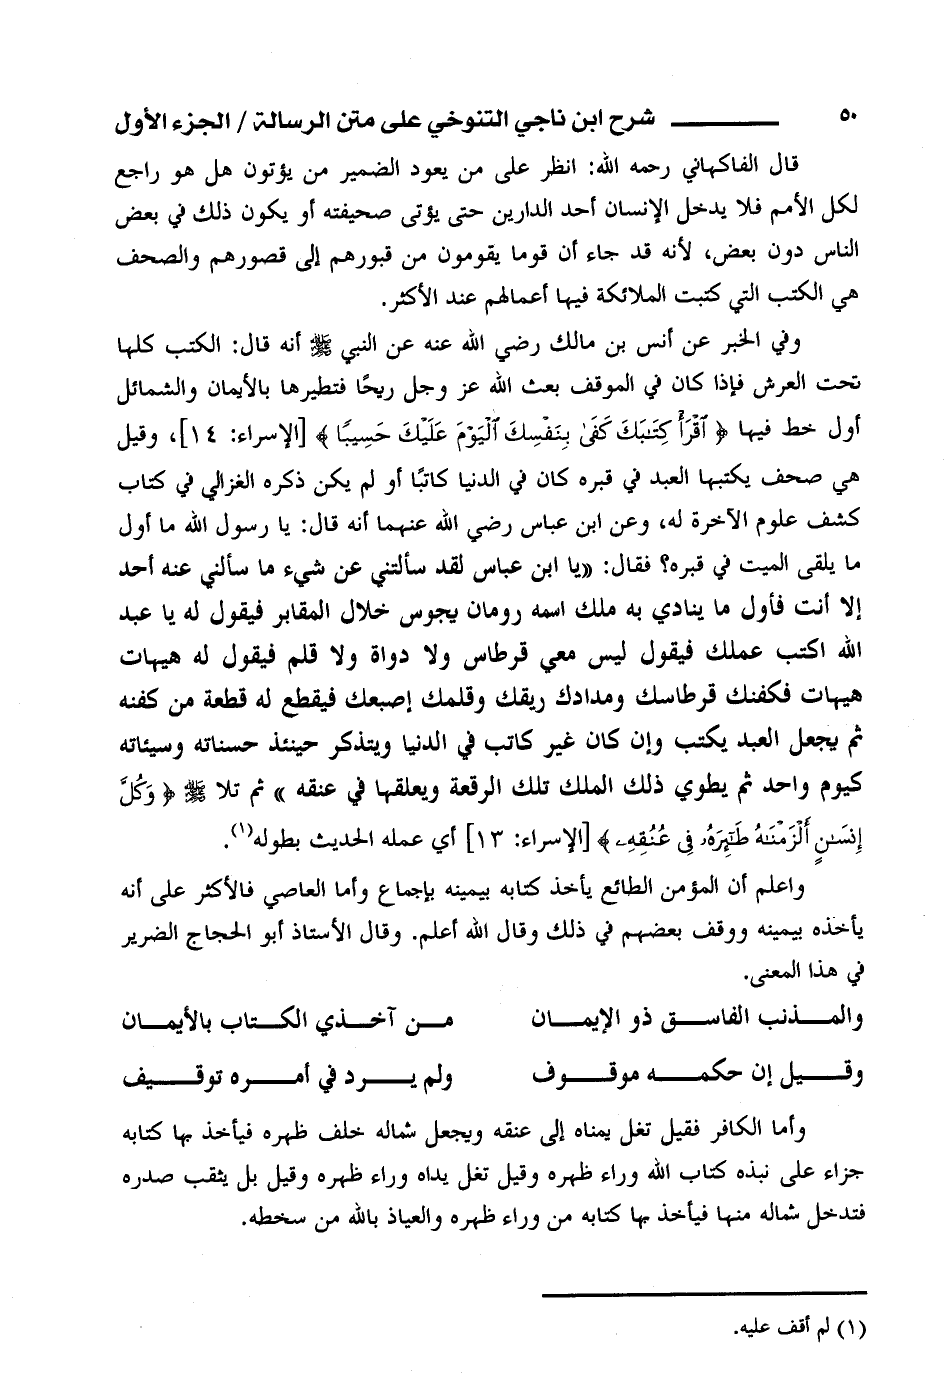 ٥٠ شرح ابن ناجي التنوخي على متن الرسالة / الجزء الأول
قال الفاكهاني رحمه الله: انظر على من يعود الضمير من يؤتون هل هو راجع
لكل الأمم فلا يدخل الإنسان أحد الدارين حتى يؤتى صحيفته أو يكون ذلك في بعض
الناس دون بعض، لأنه قد جاء أن قوما يقومون من قبورهم إلى قصورهم والصحف
هي الكتب التي كتبت الملائكة فيها أعمالهم عند الأكثر.
وفي الخبر عن أنس بن مالك رضي الله عنه عن النبي ﷺ أنه قال: الكتب كلها
تحت العرش فإذا كان في الموقف بعث الله عز وجل ريحًا فتطيرها بالأيمان والشمائل
أول خط فيها ﴿ ٱقۡرَأۡ كِتَٰبَكَ كَفَىٰ بِنَفۡسِكَ ٱلۡيَوۡمَ عَلَيۡكَ حَسِيبٗا ﴾ [الإسراء: ١٤]، وقيل
هي صحف يكتبها العبد في قبره كان في الدنيا كاتبًا أو لم يكن ذكره الغزالي في كتاب
كشف علوم الآخرة له، وعن ابن عباس رضي الله عنهما أنه قال: يا رسول الله ما أول
ما يلقى الميت في قبره؟ فقال: «يا ابن عباس لقد سألتني عن شيء ما سألني عنه أحد
إلا أنت فأول ما ينادي به ملك اسمه رومان يجوس خلال المقابر فيقول له يا عبد
الله اكتب عملك فيقول ليس معي قرطاس ولا دواة ولا قلم فيقول له هيهات
هيهات فكفنك قرطاسك ومدادك ريقك وقلمك إصبعك فيقطع له قطعة من كفنه
ثم يجعل العبد يكتب وإن كان غير كاتب في الدنيا ويتذكر حينئذ حسناته وسيئاته
كيوم واحد ثم يطوي ذلك الملك تلك الرقعة ويعلقها في عنقه » ثم تلا ﷺ ﴿ وَكُلَّ
إِنسَٰنٍ أَلۡزَمۡنَٰهُ طَٰٓئِرَهُۥ فِي عُنُقِهِۦ ﴾ [الإسراء: ١٣] أي عمله الحديث بطوله(١).
واعلم أن المؤمن الطائع يأخذ كتابه بيمينه بإجماع وأما العاصي فالأكثر على أنه
يأخذه بيمينه ووقف بعضهم في ذلك وقال الله أعلم. وقال الأستاذ أبو الحجاج الضرير
في هذا المعنى.
والمـــذنب الفاســـق ذو الإيمـــان مـــن آخـــذي الكـــتاب بالأيمـــان
وقـــيل إن حكمـــه موقـــوف ولم يـــرد في أمـــره توقـــيف
وأما الكافر فقيل تغل يمناه إلى عنقه ويجعل شماله خلف ظهره فيأخذ بها كتابه
جزاء على نبذه كتاب الله وراء ظهره وقيل تغل يداه وراء ظهره وقيل بل يثقب صدره
فتدخل شماله منها فيأخذ بها كتابه من وراء ظهره والعياذ بالله من سخطه.
(١) لم أقف عليه.